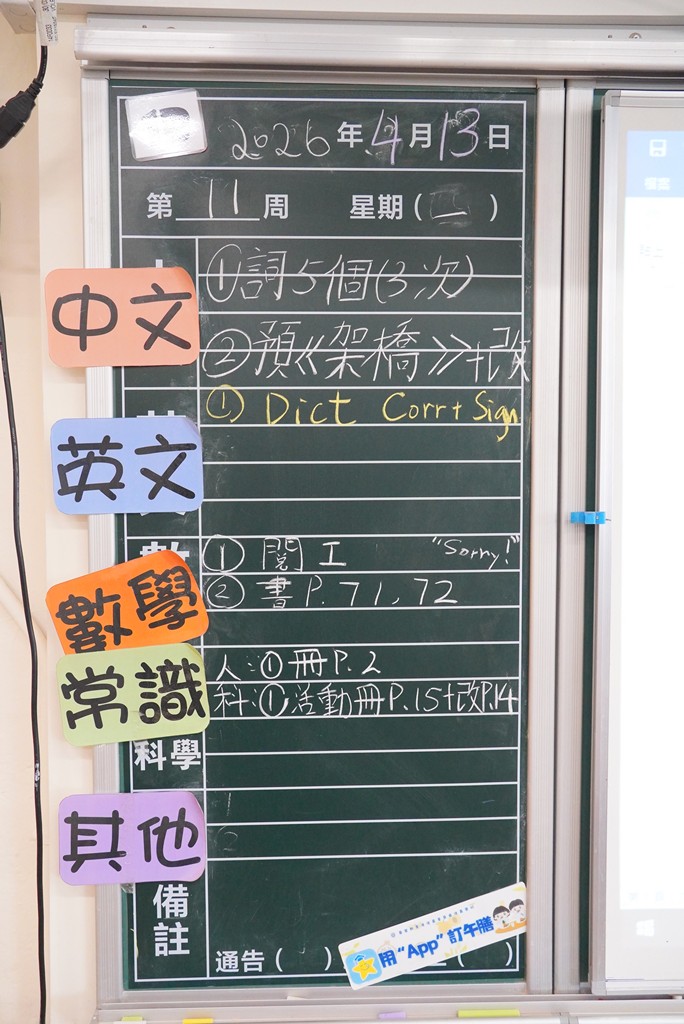 2026年4月13日
第11周 星期( )
中文
①詞5個(3次)
②預《架橋》+改
英文
① Dict Corr + Sign
數學
① 閱工 "Sorry!"
② 書P.71,72
常識
人:①冊P.2
科:①活動冊P.15+改P.14
科學
其他
備註
通告( )
用"App"訂午膳